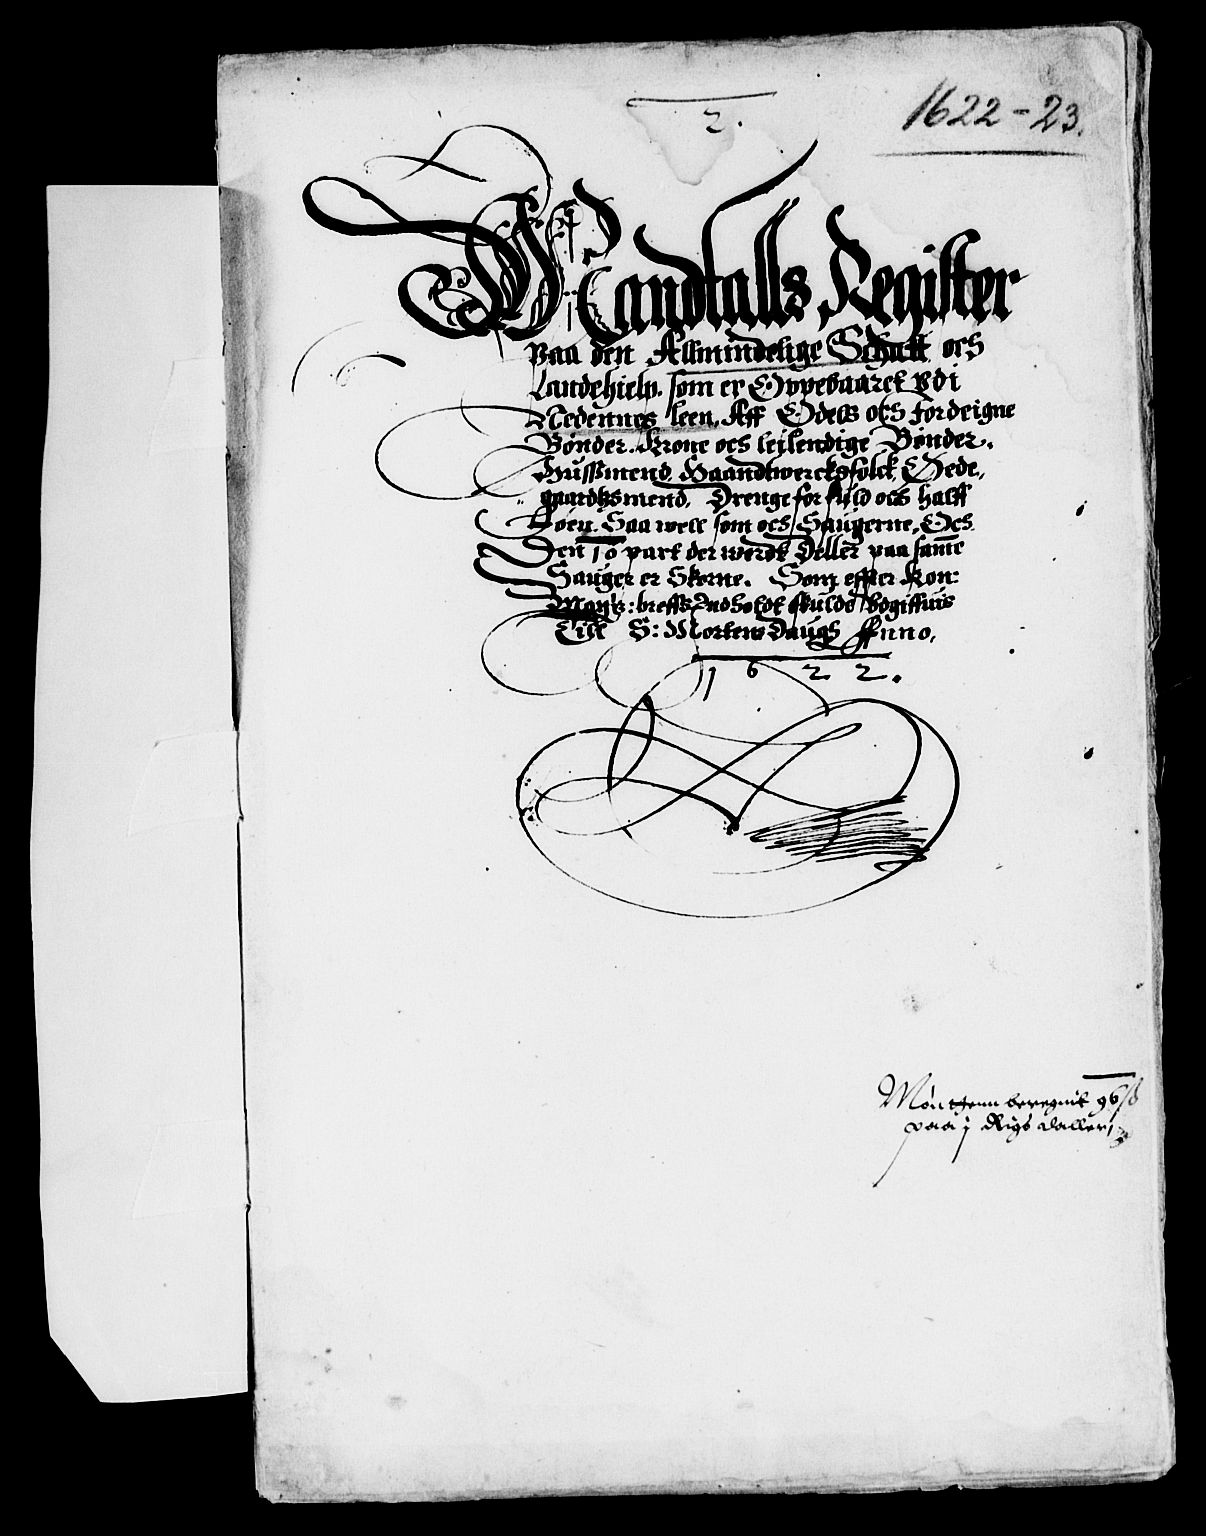 1622-23.
2.
Mandtalls Register
paa den Allmindelige Schatt ochs
Landehielp. som er Oppebaaret Vdi
Nedennes leen, Aff Odels ochs fordeigne
Bønder. Krone ochs leilendige Bønder.
Hussmend, Haandtwercksfolck, Øde,
gaardtzmend, Drenge for fuld ochs halff
Løen. Saa well som ochs Saugerne, Ochs
Den 10 part der wordt Deller paa samme
Sauger er Skorne. Som effter Kon:
May: breffs Indholdt skulde Vdgiffuis
Till S: Mortens Daugs Anno,
1622.
Møntgenn beregnit 96 ß
paa j Rigs daller,